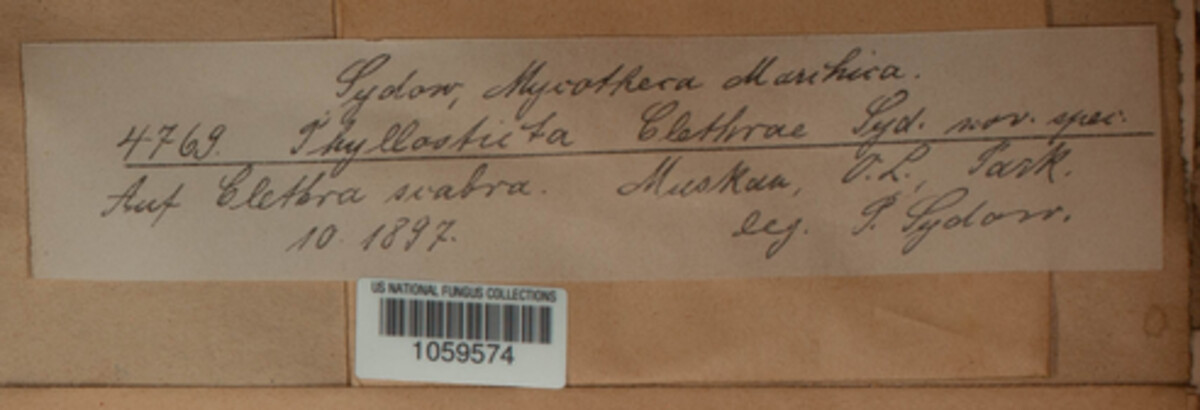 Sydow, Mycotheca Marchica.
4769. Phyllosticta Clethrae Syd. nov. spec.
Auf Clethra scabra. Muskau, O.L., Park.
10. 1897. leg. P. Sydow.
US NATIONAL FUNGUS COLLECTIONS
1059574